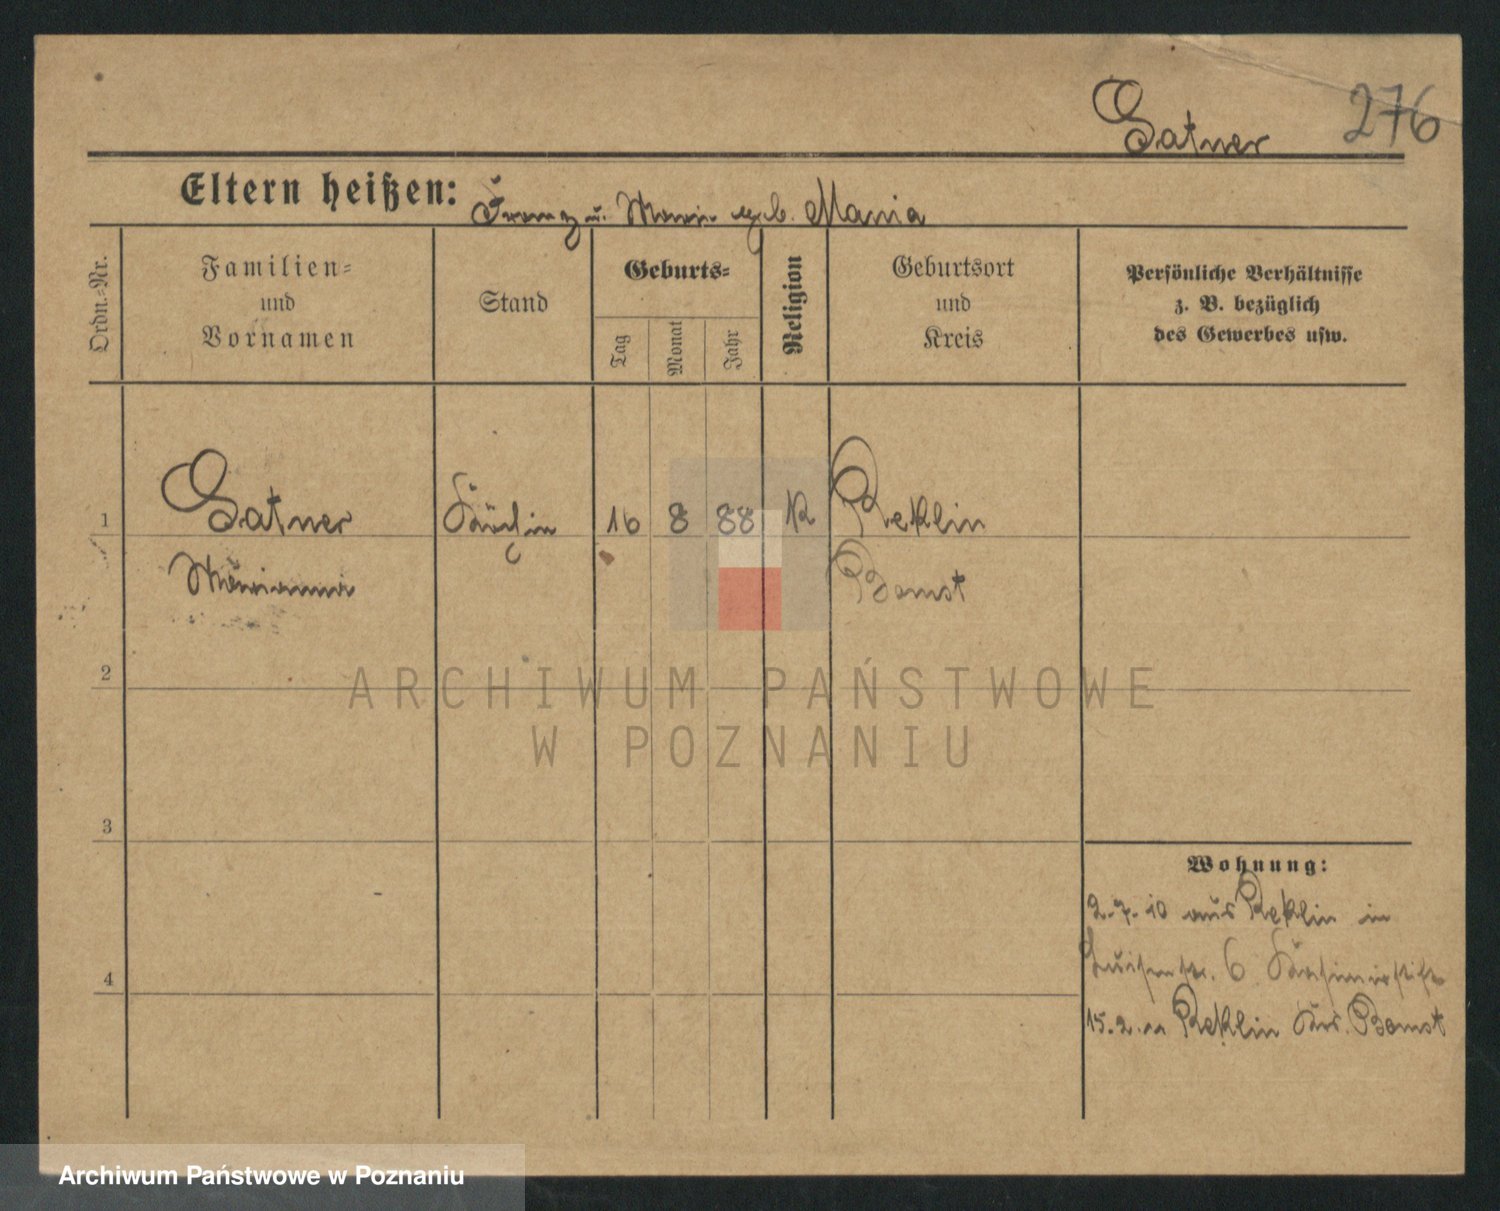 Gatner 276
Eltern heißen: Franz u. Marie geb. Mania
Ordn.-Nr.
Familien-
und
Vornamen
Stand
Geburts-
Tag
Monat
Jahr
Religion
Geburtsort
und
Kreis
Persönliche Verhältnisse
z. B. bezüglich
des Gewerbes usw.
1 Gatner 16 8 88 K Reklin
Marianna Bomst
2
ARCHIWUM PAŃSTWOWE
W POZNANIU
3
Wohnung:
2.7.10 aus Reklin in
Luisenstr. 6
4
15.2.11 Reklin Krs. Bomst
Archiwum Państwowe w Poznaniu